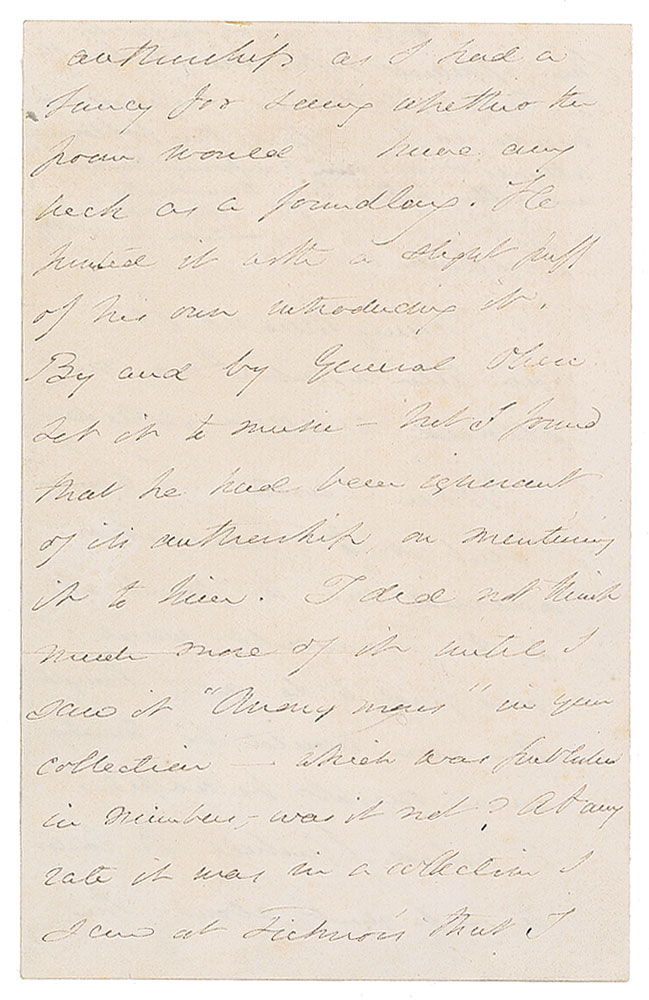 authorship, as I had a
fancy for seeing whether the
poem would have any
luck as a foundling. He
printed it with a slight puff
of his own introducing it.
By and by General Oliver
set it to music - but I found
that he had been ignorant
of its authorship, on mentioning
it to him. I did not think
much more of it until I
saw it "Anonymous" in your
collection - which was published
in numbers, - was it not? At any
rate it was in a collection I
saw at Ticknor's that I